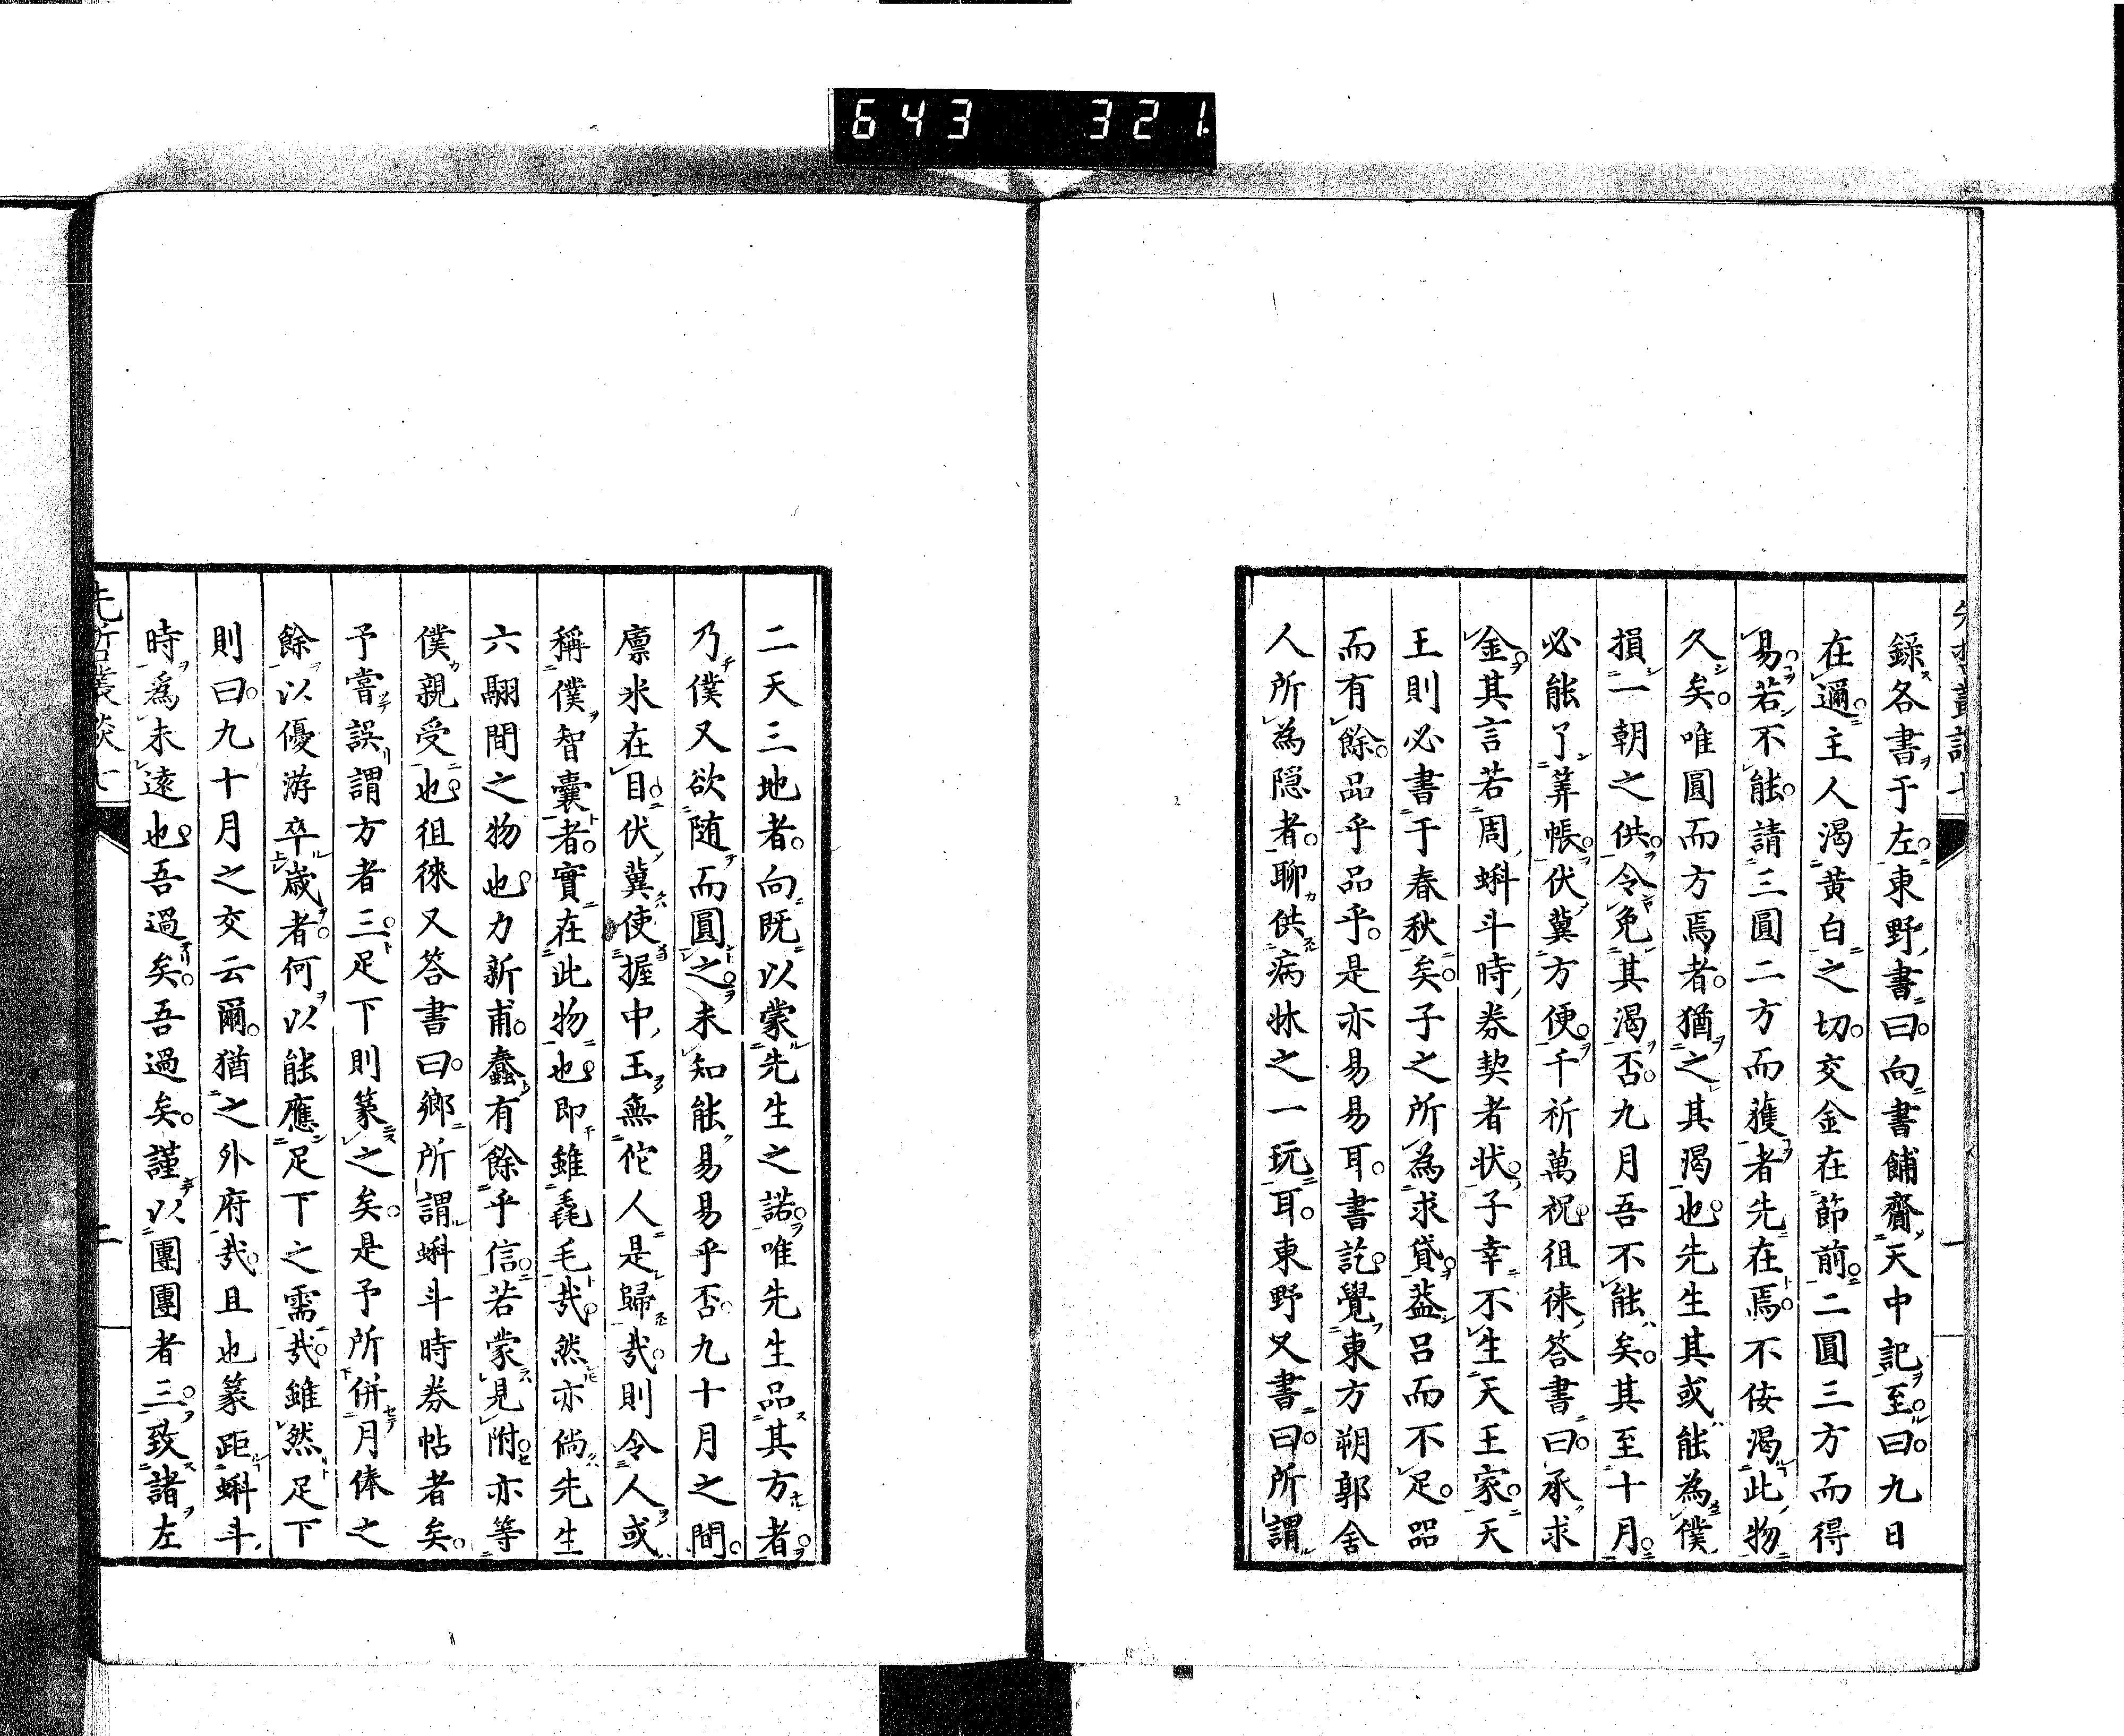 643 321.
録各書于左東野書曰向書餔齎天中記至曰九日
在邇主人渴黄白之切交金在節前二圓三方而得
易若不能請三圓二方而獲者先在焉不佞渴此物
久矣唯圓而方焉者猶之其渴也先生其或能為僕
損一朝之供令免其渴否九月吾不能矣其至十月
必能了筭帳伏冀方便千祈萬祝徂徠答書曰承求
金其言若周蝌斗時券契者状子幸不生天王家天
王則必書于春秋矣子之所為求貸葢呂而不足㗊
而有餘品乎品乎是亦易易耳書訖覺東方朔郭舍
人所為隠者聊供病牀之一玩耳東野又書曰所謂
二天三地者向既以蒙先生之諾唯先生品其方者
乃僕又欲随而圓之未知能易易乎否九十月之間
廪氷在目伏冀使握中玉無佗人是歸哉則令人或
稱僕智囊者實在此物也即雖毳毛哉然亦倘先生
六翮間之物也力新甫蠢有餘乎信若蒙見附亦等
僕親受也徂徠又答書曰鄉所謂蝌斗時券帖者矣
予嘗誤謂方者三足下則篆之矣是予所併月俸之
餘以優游卒歳者何以能應足下之需哉雖然足下
則曰九十月之交云爾猶之外府哉且也篆距蝌斗
時為未遠也吾過矣吾過矣謹以團團者三致諸左
先哲叢談 七
二